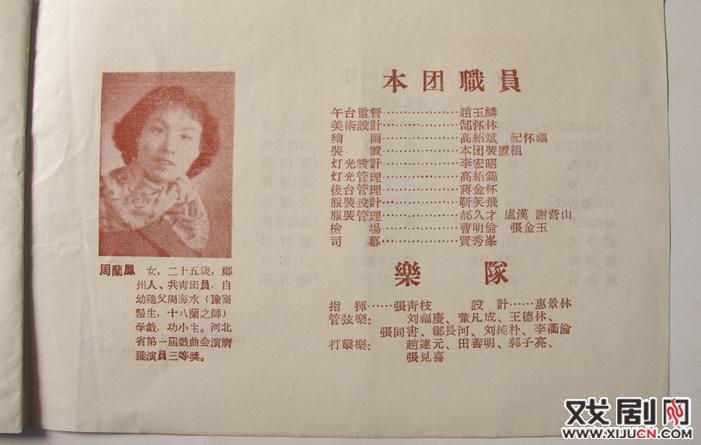 本团職員
午台監督………………趙玉鱗
美術設計………………郜怀林
繪　画………………高紹斌　紀怀福
裝　置………………本团裝置祖
灯光設計………………李宏昭
灯光管理………………高紹錦
後台管理………………蔣金杯
服裝設計………………靳笑飛
服裝管理………………郝久才　盧漢　謝营山
檢　場………………曹明倫　張金玉
司　幕………………賈秀峯
樂　隊
指　揮……張青枝　設　計……惠景林
管弦樂：　刘福慶、董凡成、王德林、
張同書、鄒長河、刘純朴、李衢倫
打擊樂：　趙連元、田善明、郭子亮、
張見喜
周蘭鳳　女，二十五歲，鄭
州人、共青团員，自
幼隨父周海水（豫剧
鬚生，十八蘭之師）
学戲，功小生。河北
省第一届戲曲会演膺
獲演員三等奖。
戏剧网
www.XIJUCN.COM